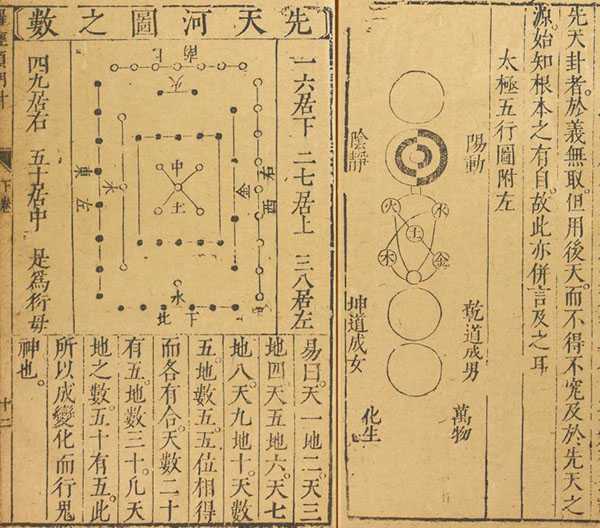 先天卦者。於義無取。但用後天。而不得不究及於先天之
源。始知根本之有自。故此亦併言及之耳
太極五行圖附左
陽動
陰靜
水
火
土
金
木
乾道成男
坤道成女
萬物
化生
先天河圖之數
一六居下 二七居上 三八居左
南上
火
右西
金
中土
木
東左
水
下北
四九居右 五十居中 是爲衍母
易曰。天一地二。天三
地四。天五地六。天七
地八。天九地十。天數
五。地數五。五位相得
而各有合。天數二十
有五。地數三十。凡天
地之數。五十有五。此
所以成變化而行鬼
神也。
下卷
十二